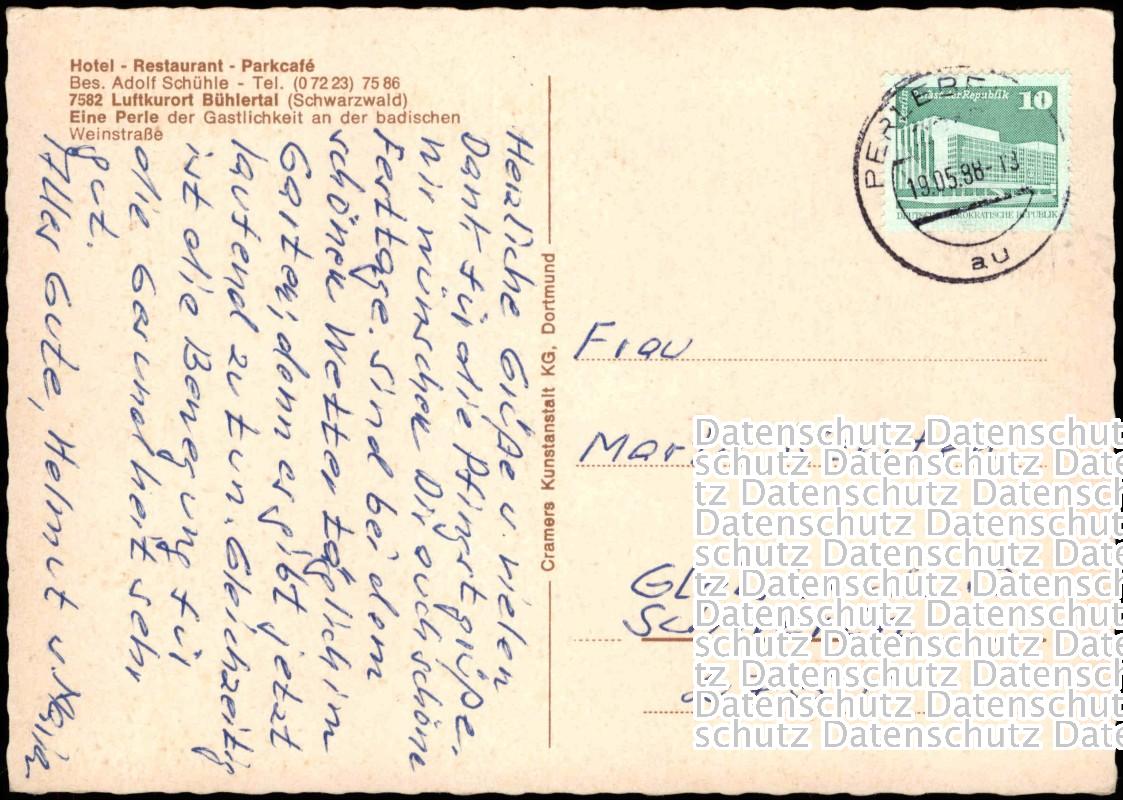 Hotel - Restaurant - Parkcafé
Bes. Adolf Schühle - Tel. (0 72 23) 75 86
7582 Luftkurort Bühlertal (Schwarzwald)
Eine Perle der Gastlichkeit an der badischen
Weinstraße
Herzliche Grüße u. vielen
Dank für die Pfingstgrüße.
Wir wünschen Dir auch schöne
Festtage. Sind bei dem
schönen Wetter täglich im
Garten, denn es gibt jetzt
laufend zu tun. Gleichzeitig
ist die Bewegung für
die Gesundheit sehr
gut.
Alles Gute, Helmut u.
Cramers Kunstanstalt KG, Dortmund
Berlin - Palast der Republik 10
DEUTSCHE DEMOKRATISCHE REPUBLIK
PERLEBE
19.05.88-13
au
Frau
Datenschutz Datenschutz
schutz Datenschutz Date
tz Datenschutz Datensch
Datenschutz Datenschutz
schutz Datenschutz Date
tz Datenschutz Datensch
Datenschutz Datenschutz
schutz Datenschutz Date
tz Datenschutz Datensch
Datenschutz Datenschutz
schutz Datenschutz Date